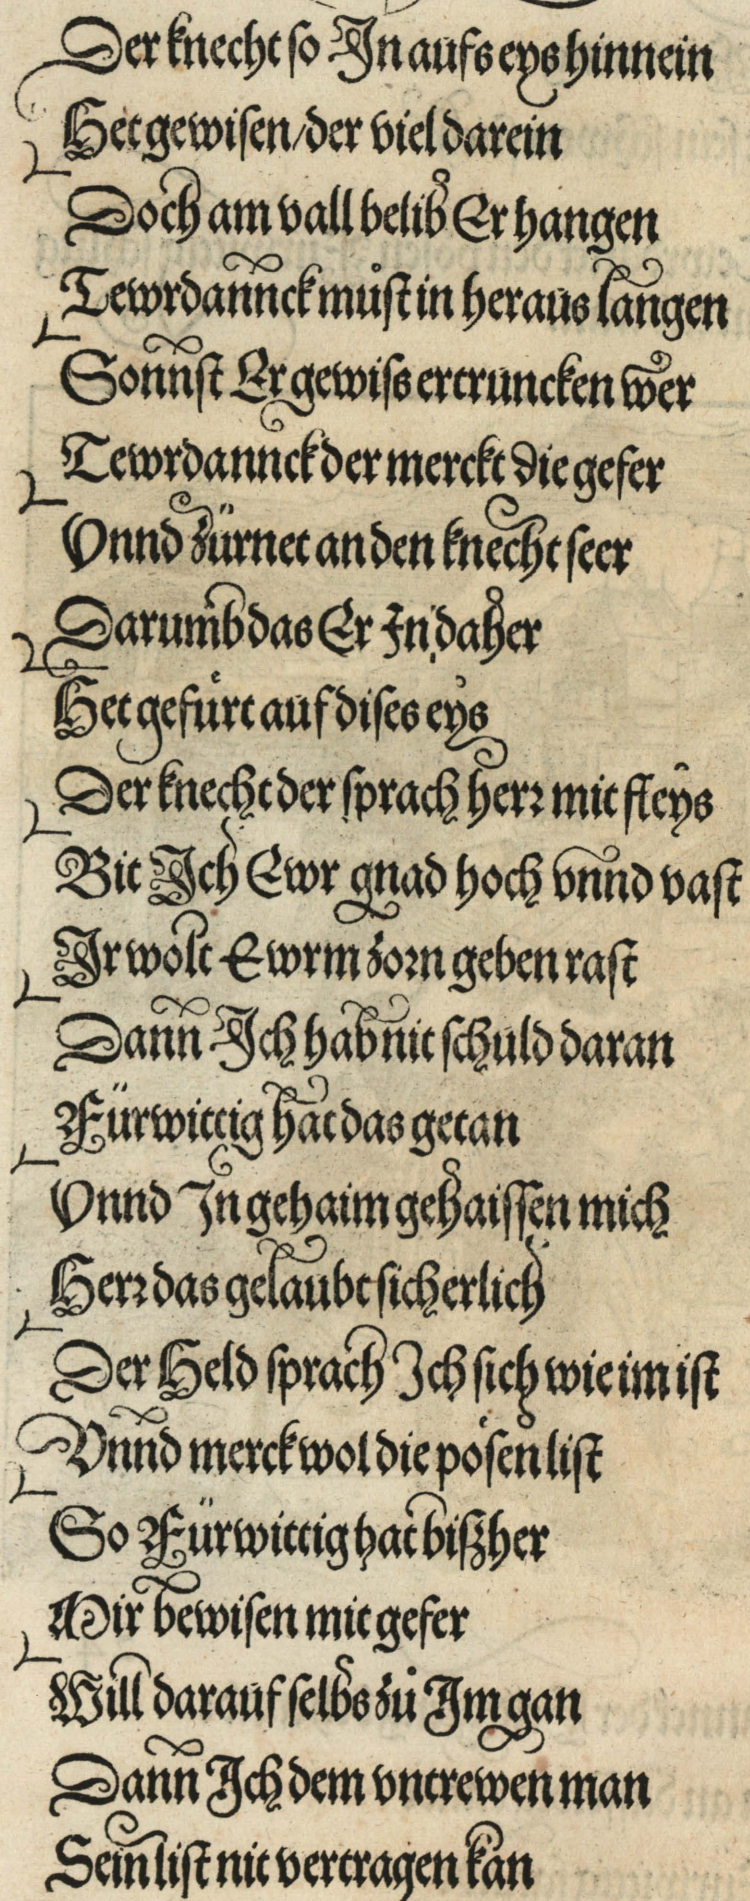 Der knecht so In aufs eys hinnein
Het gewisen/der viel darein
Doch am vall belib Er hangen
Tewrdannck můst in heraus langen
Sonnst Er gewiss ertruncken wer
Tewrdannck der merckt die gefer
Vnnd zürnet an den knecht seer
Darumb das Er In daher
Het gefürt auf dises eys
Der knecht der sprach herr mit fleys
Bit Ich Ewr gnad hoch vnnd vast
Ir wolt Ewrm zorn geben rast
Dann Ich hab nit schuld daran
Fürwittig hat das getan
Vnnd In gehaim gehaissen mich
Herr das gelaubt sicherlich
Der Held sprach Ich sich wie im ist
Vnnd merck wol die pösen list
So Fürwittig hat bißher
Mir bewisen mit gefer
Will darauf selbs zů Im gan
Dann Ich dem vntrewen man
Sein list nit vertragen kan